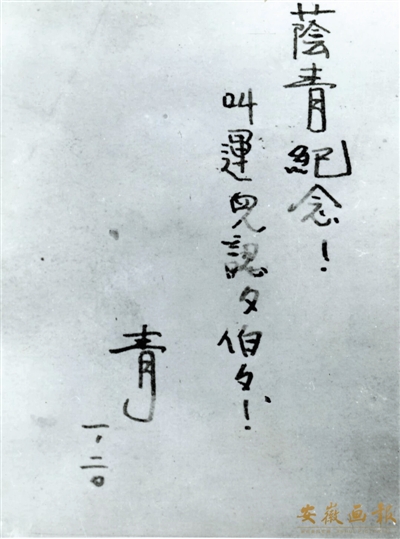 蔭青紀念！
叫運兒認々伯々！
青
一·二〇
安徽画报